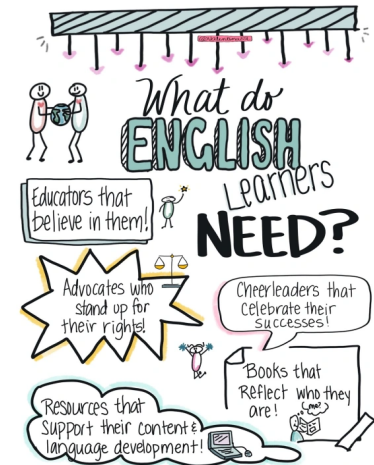 What do
ENGLISH
Learners
NEED?
Educators that
believe in them!
Advocates who
stand up for
their rights!
Cheerleaders that
celebrate their
successes!
Books that
Reflect who they
are!
Resources that
support their content &
language development!